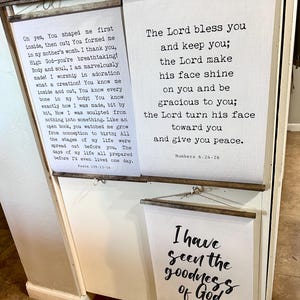 Oh yes, You shaped me first
inside, then out; You formed me
in my mother's womb. I thank you,
High God-you're breathtaking!
Body and soul, I am marvelously
made! I worship in adoration
what a creation! You know me
inside and out, You know every
bone in my body; You know
exactly how I was made, bit by
bit, How I was sculpted from
nothing into something. Like an
open book, you watched me grow
from conception to birth; All
the stages of my life were
spread out before you, The
days of my life all prepared
before I'd even lived one day.
Psalm 139:13-16
The Lord bless you
and keep you;
the Lord make
his face shine
on you and be
gracious to you;
the Lord turn his face
toward you
and give you peace.
Numbers 6:24-26
I have
seen the
goodness
of God